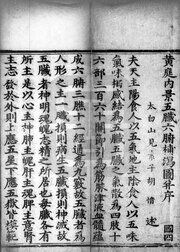 黃庭內景五臟六腑補瀉圖并序 國四
太白山見素子胡愔述
夫天主陽食人以五氣地主陰食人以五味
氣味相感結為五臟五臟之氣散為四肢十
六部三百六十關節引為筋脈津液血髓蘊
成六腑三膲十二經通為九竅故五臟者為
人形之主一臟損則病生五臟損則神滅故
五臟者神明魂魄志精之所居也每臟各有
所主是以心主神肺主魄肝主魂脾主意腎
主志發於外則上應五星下應五嶽皆模範